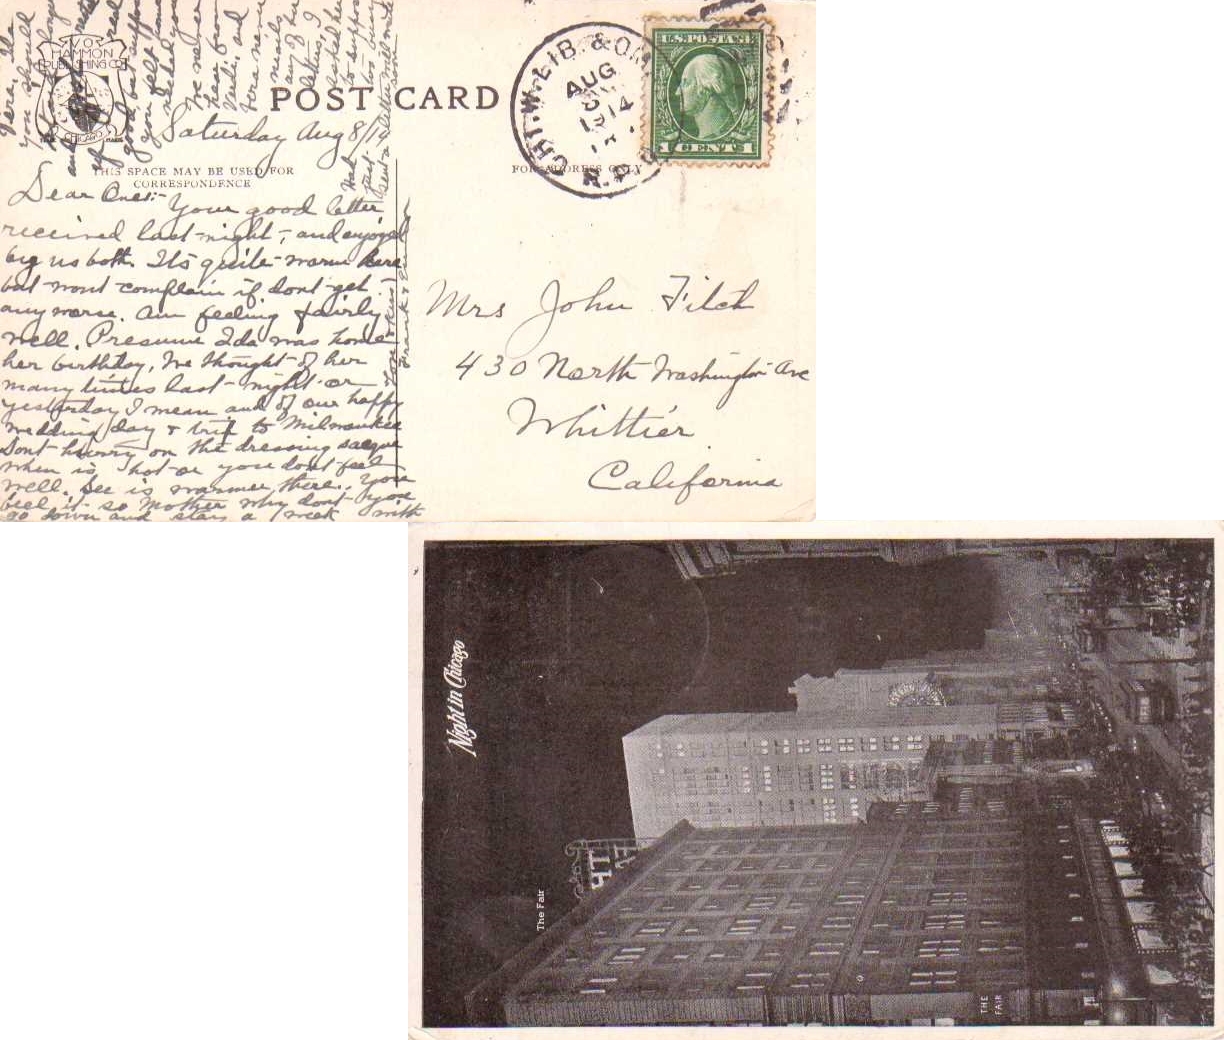 VOS
HAMMON
PUBLISHING CO
CHICAGO
POST CARD
THIS SPACE MAY BE USED FOR
CORRESPONDENCE
FOR ADDRESS ONLY
U.S. POSTAGE
1 CENT 1
CHI. W. LIB. & OM
AUG
1914
R.P.O.
Saturday Aug 8/14
Dear Ones:- Your good letter
received last night, and enjoyed
by us both. Its quite warm here
but wont complain if dont get
any worse. Am feeling fairly
well. Presume Ida was home
her birthday. We thought of her
many times last night or
yesterday I mean and of our happy
wedding day & trip to Milwaukee
Dont hurry on the dressing sacque
when is hot or you dont feel
well. See is warmer there. You
feel it so Mother why dont you
go down and stay a week with
Vera, Ida
you should
and
of
good
you felt
need
We never
hear from
Verdi, and
Cora never
mails
any of her
letters, I
asked her
to suppose
too busy
Had
just
sent a letter
Frank &
Mrs John Fitch
430 North Washington Ave
Whittier
California
Night in Chicago
The Fair
THE
FAIR